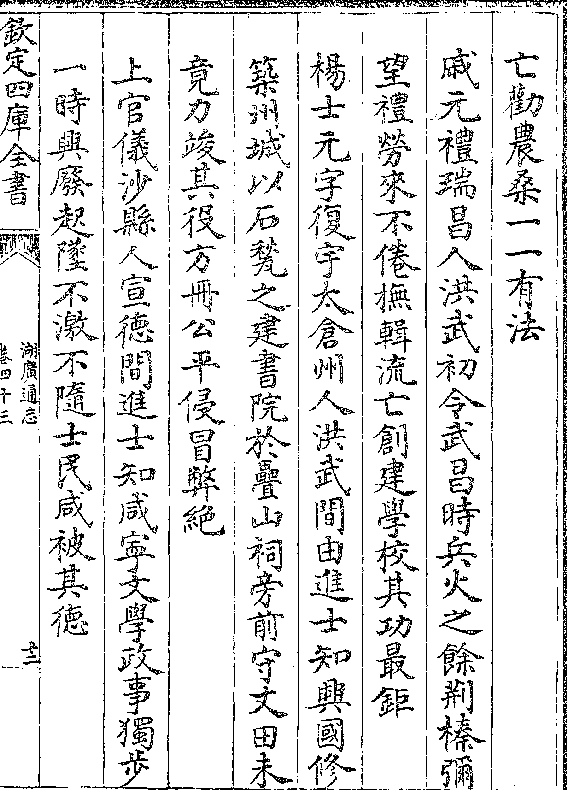 亡勸農桑一一有法
戚元禮瑞昌人洪武初令武昌時兵火之餘荆榛彌
望禮勞來不倦撫輯流亡創建學校其功最鉅
楊士元字復宇太倉州人洪武間由進士知興國修
築州城以石甃之建書院於疊山祠旁前守文田未
竟力竣其役方冊公平侵冒弊絶
上官儀沙縣人宣德間進士知咸寧文學政事獨步
一時興廢起墜不激不隨士民咸被其德
欽定四庫全書
湖廣通志
卷四十三
十二